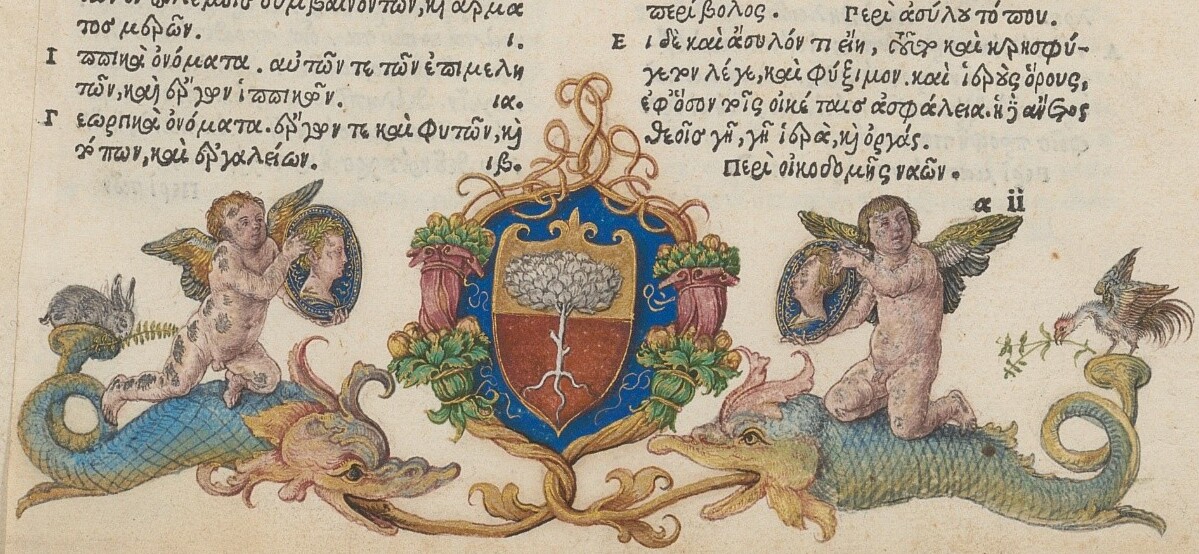 τος μερῶν. ι.
Ι ππικὰ ὀνόματα. αὐτῶν τε τῶν ἐπιμελη
τῶν, καὶ ἔργων ἱππικῶν. ια.
Γ εωργικὰ ὀνόματα. ἔργων τε καὶ φυτῶν, καὶ
τόπων, καὶ ἐργαλείων. ιβ.
περίβολος. Περὶ ἀσύλου τόπου.
Ε ι δὲ καὶ ἄσυλόν τι εἴη, καὶ κρησφύ-
γετον λέγε, καὶ φύξιμον. καὶ ἱεροὺς ὅρους,
ἐφ' ὅσον τοῖς οἰκέταις ἀσφάλεια. ἡ
θεοῖς γῆ, γῆ ἱερὰ, καὶ ὀργάς.
Περὶ οἰκοδομῆς ναῶν.
α ii